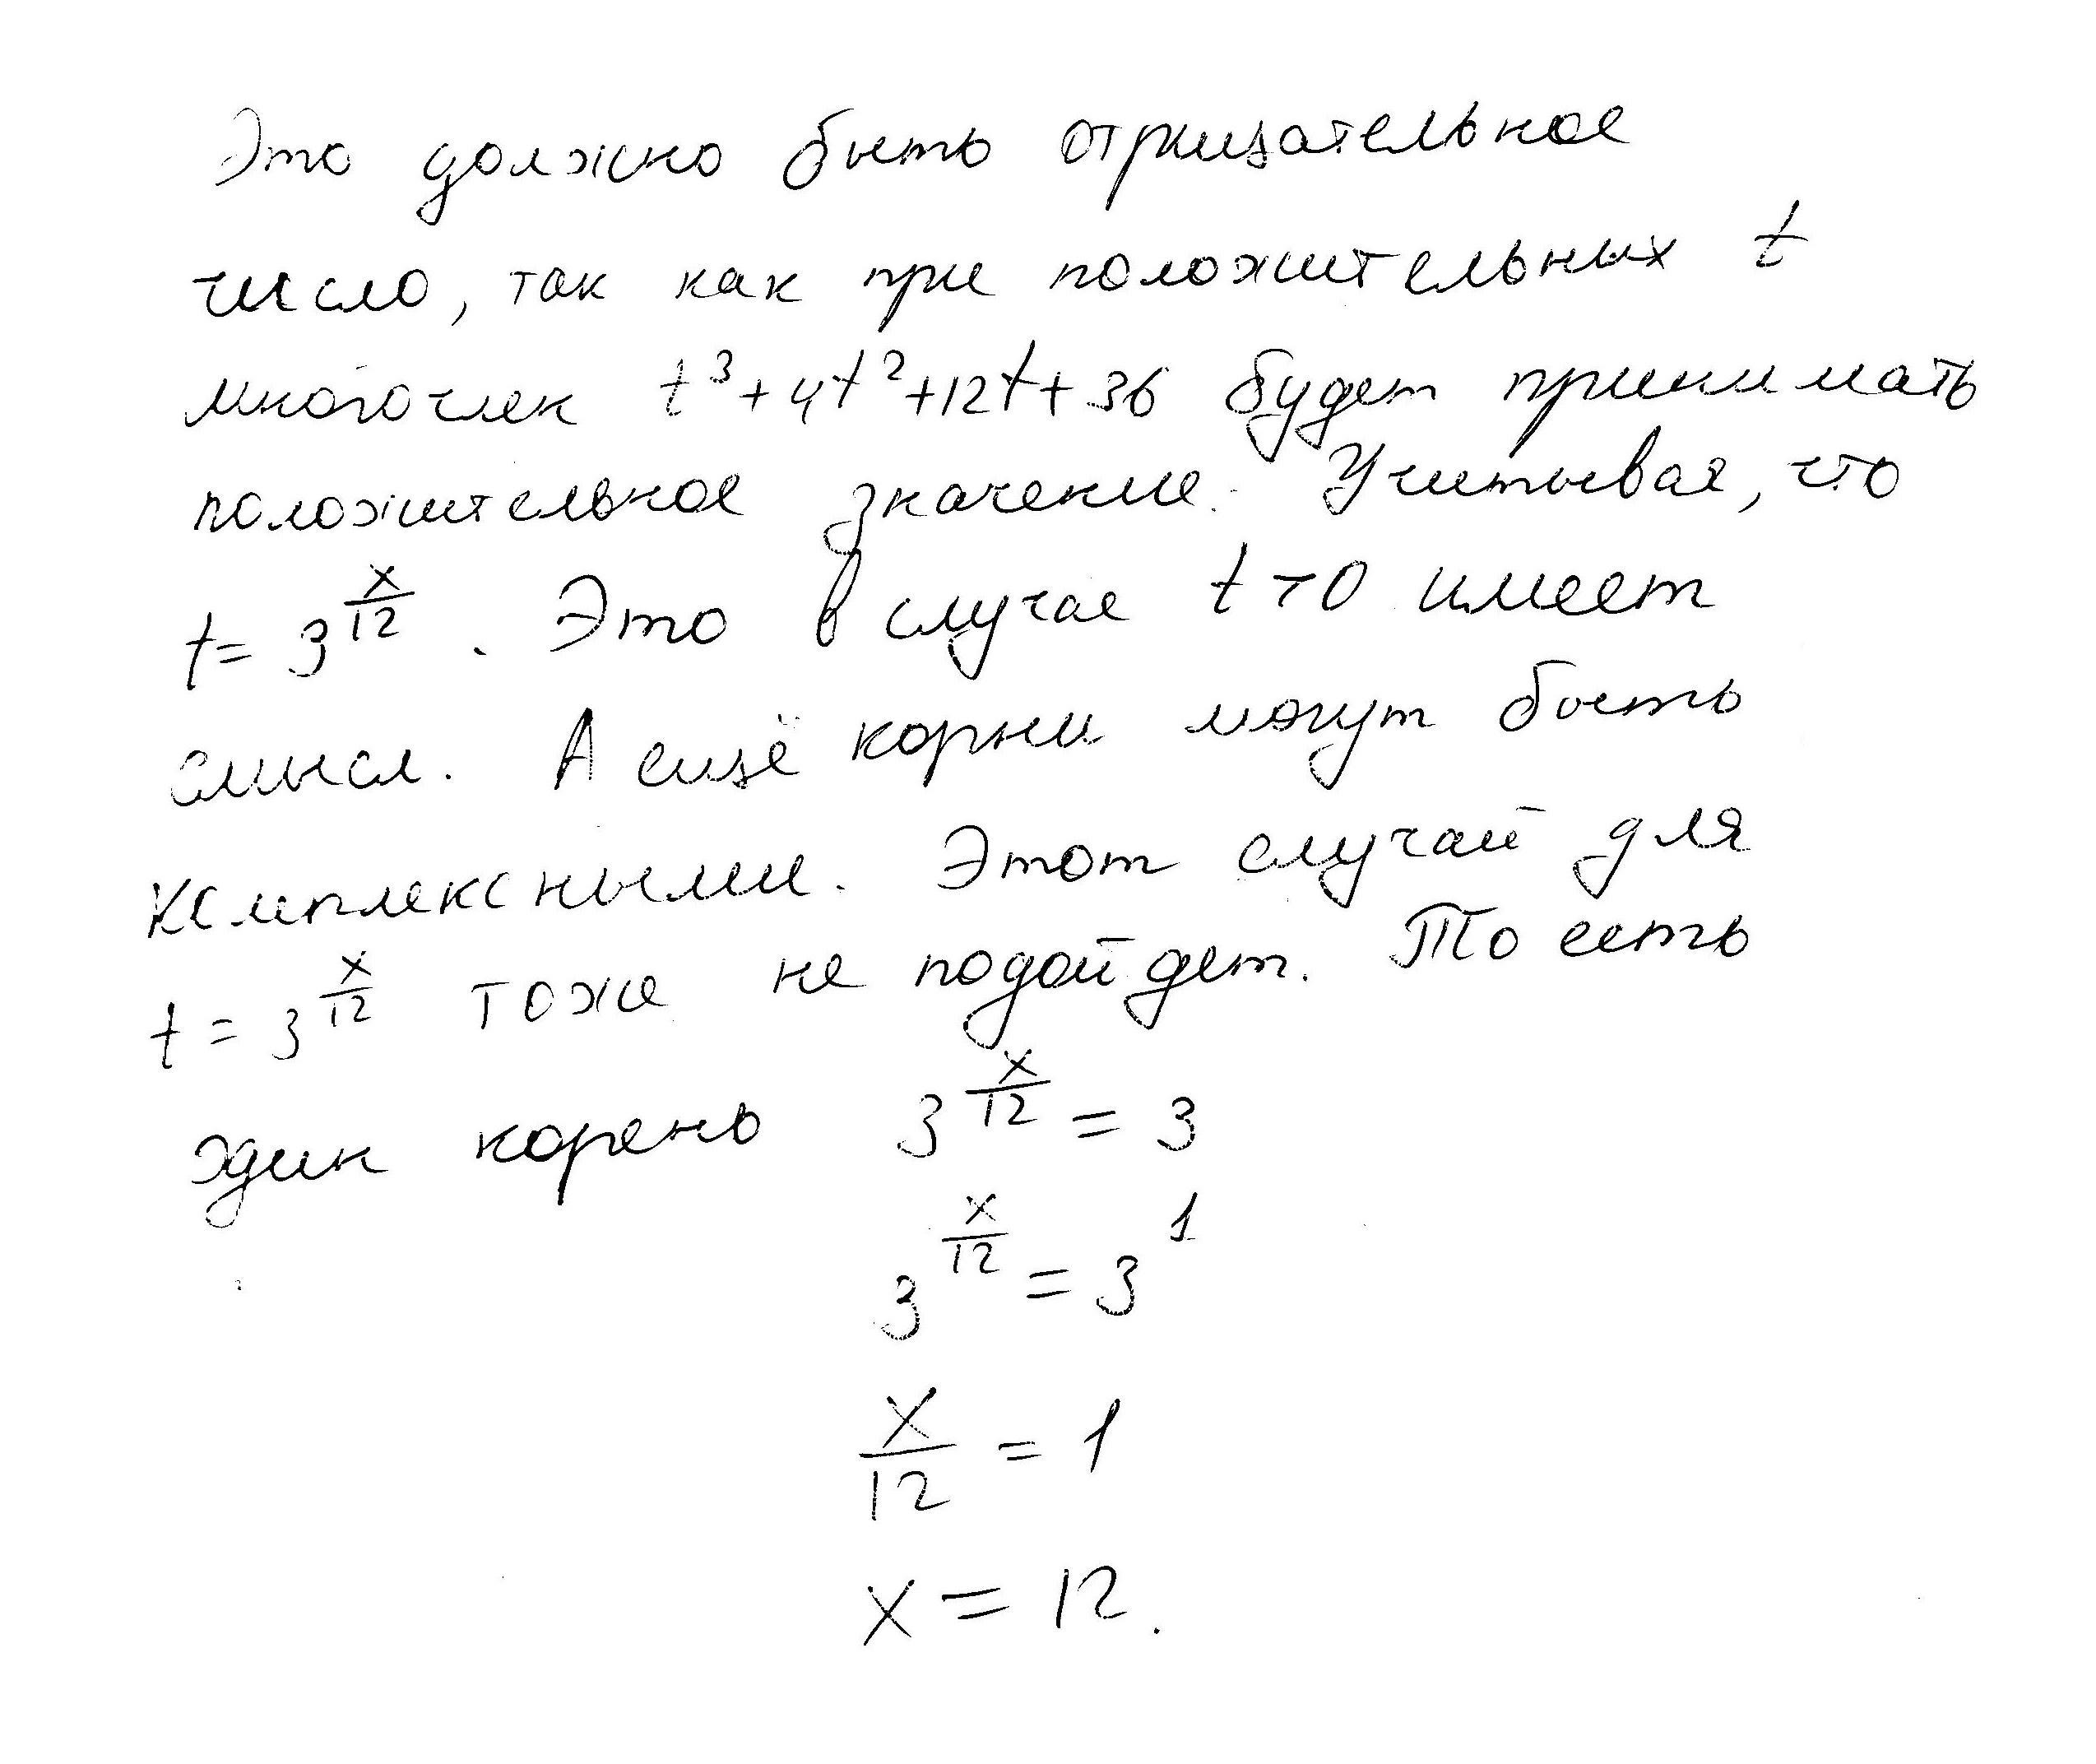 Это должно быть отрицательное
число, так как при положительных t
многочлен t³+4t²+12t+36 будет принимать
положительное значение. Учитывая, что
t= 3^(x/12). Это в случае t>0 имеет
смысл. А ещё корни могут быть
комплексными. Этот случай для
t = 3^(x/12) тоже не подойдет. То есть
один корень 3^(x/12) = 3
3^(x/12) = 3¹
x/12 = 1
x = 12.